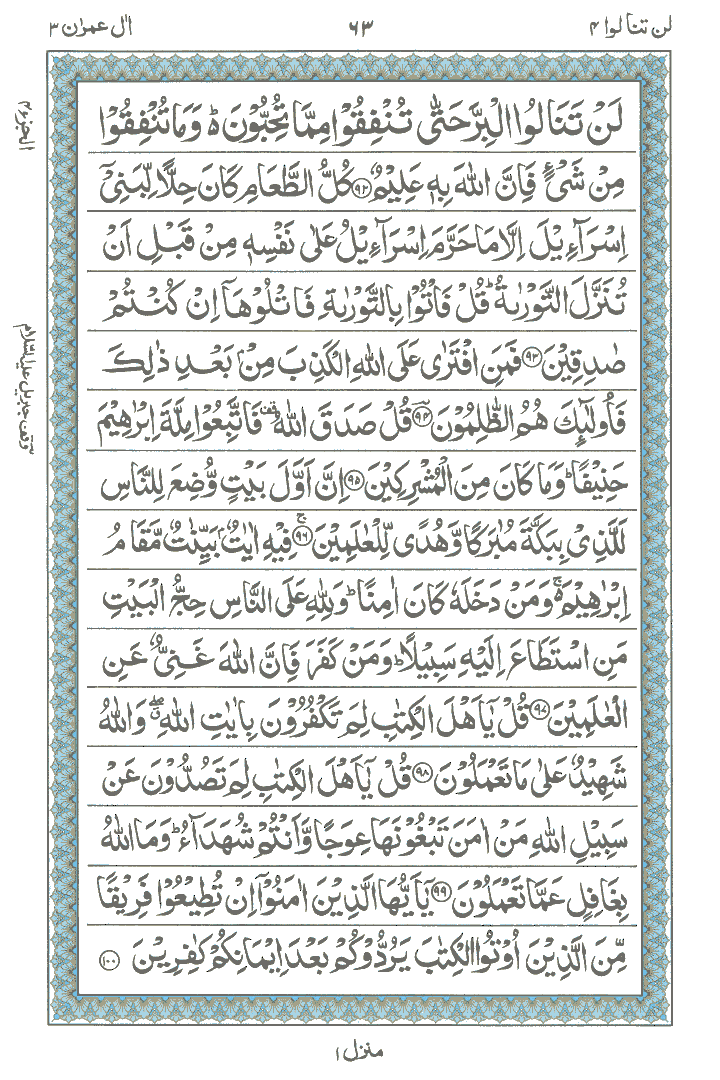 لن تنالوا ۴
۶۳
اٰل عمرٰن ۳
لَنْ تَنَالُوا الْبِرَّ حَتّٰى تُنْفِقُوْا مِمَّا تُحِبُّوْنَ ؕ وَمَا تُنْفِقُوْا
مِنْ شَىْءٍ فَاِنَّ اللّٰهَ بِهٖ عَلِيْمٌ ﴿۹۲﴾ كُلُّ الطَّعَامِ كَانَ حِلًّا لِّبَنِىْۤ
اِسْرَآءِيْلَ اِلَّا مَا حَرَّمَ اِسْرَآءِيْلُ عَلٰى نَفْسِهٖ مِنْ قَبْلِ اَنْ
تُنَزَّلَ التَّوْرٰىةُ ؕ قُلْ فَاْتُوْا بِالتَّوْرٰىةِ فَاتْلُوْهَاۤ اِنْ كُنْتُمْ
صٰدِقِيْنَ ﴿۹۳﴾ فَمَنِ افْتَرٰى عَلَى اللّٰهِ الْكَذِبَ مِنْۢ بَعْدِ ذٰلِكَ
فَاُولٰٓئِكَ هُمُ الظّٰلِمُوْنَ ﴿۹۴﴾ قُلْ صَدَقَ اللّٰهُ فَاتَّبِعُوْا مِلَّةَ اِبْرٰهِيْمَ
حَنِيْفًا ؕ وَمَا كَانَ مِنَ الْمُشْرِكِيْنَ ﴿۹۵﴾ اِنَّ اَوَّلَ بَيْتٍ وُّضِعَ لِلنَّاسِ
لَلَّذِىْ بِبَكَّةَ مُبٰرَكًا وَّهُدًى لِّلْعٰلَمِيْنَ ۚ ﴿۹۶﴾ فِيْهِ اٰيٰتٌۢ بَيِّنٰتٌ مَّقَامُ
اِبْرٰهِيْمَ ۚ وَمَنْ دَخَلَهٗ كَانَ اٰمِنًا ؕ وَلِلّٰهِ عَلَى النَّاسِ حِجُّ الْبَيْتِ
مَنِ اسْتَطَاعَ اِلَيْهِ سَبِيْلًا ؕ وَمَنْ كَفَرَ فَاِنَّ اللّٰهَ غَنِىٌّ عَنِ
الْعٰلَمِيْنَ ﴿۹۷﴾ قُلْ يٰۤاَهْلَ الْكِتٰبِ لِمَ تَكْفُرُوْنَ بِاٰيٰتِ اللّٰهِ ۖ وَاللّٰهُ
شَهِيْدٌ عَلٰى مَا تَعْمَلُوْنَ ﴿۹۸﴾ قُلْ يٰۤاَهْلَ الْكِتٰبِ لِمَ تَصُدُّوْنَ عَنْ
سَبِيْلِ اللّٰهِ مَنْ اٰمَنَ تَبْغُوْنَهَا عِوَجًا وَّاَنْتُمْ شُهَدَآءُ ؕ وَمَا اللّٰهُ
بِغَافِلٍ عَمَّا تَعْمَلُوْنَ ﴿۹۹﴾ يٰۤاَيُّهَا الَّذِيْنَ اٰمَنُوْۤا اِنْ تُطِيْعُوْا فَرِيْقًا
مِّنَ الَّذِيْنَ اُوْتُوا الْكِتٰبَ يَرُدُّوْكُمْ بَعْدَ اِيْمَانِكُمْ كٰفِرِيْنَ ﴿۱۰۰﴾
الجزء ۴
وقف جبريل عليه السلام
منزل ۱